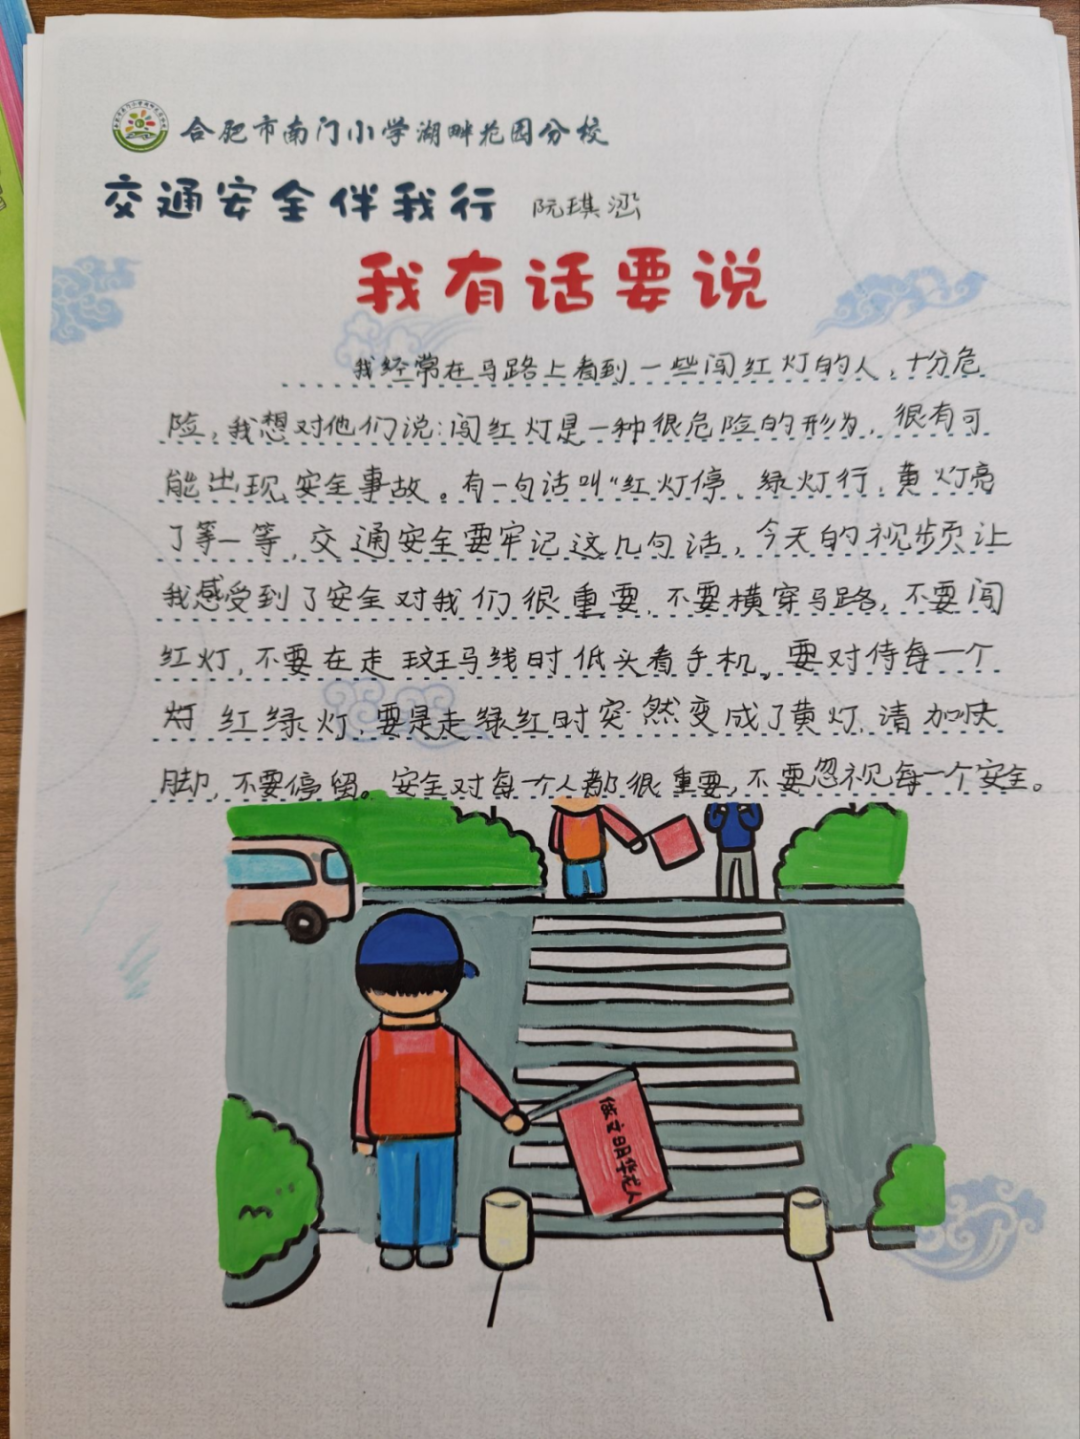 合肥市南门小学湖畔花园分校
交通安全伴我行 阮琪涵
我有话要说
我经常在马路上看到一些闯红灯的人，十分危
险，我想对他们说：闯红灯是一种很危险的形为，很有可
能出现安全事故。有一句话叫“红灯停、绿灯行，黄灯亮
了等一等，交通安全要牢记这几句话，今天的视频让
我感受到了安全对我们很重要，不要横穿马路，不要闯
红灯，不要在走玟马线时低头看手机，要对待每一个
红绿灯，要是走绿红时突然变成了黄灯，请加快
脚，不要停留。安全对每一个人都很重要，不要忽视每一个安全。
做文明学